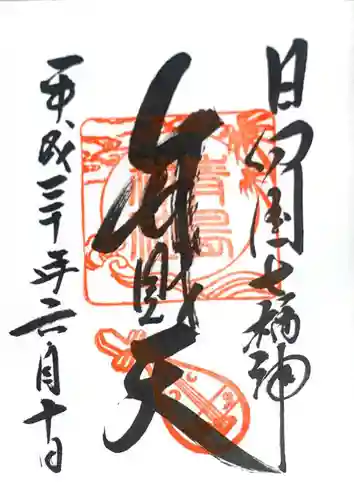 日向国七福神
弁財天
平成三十年六月十日